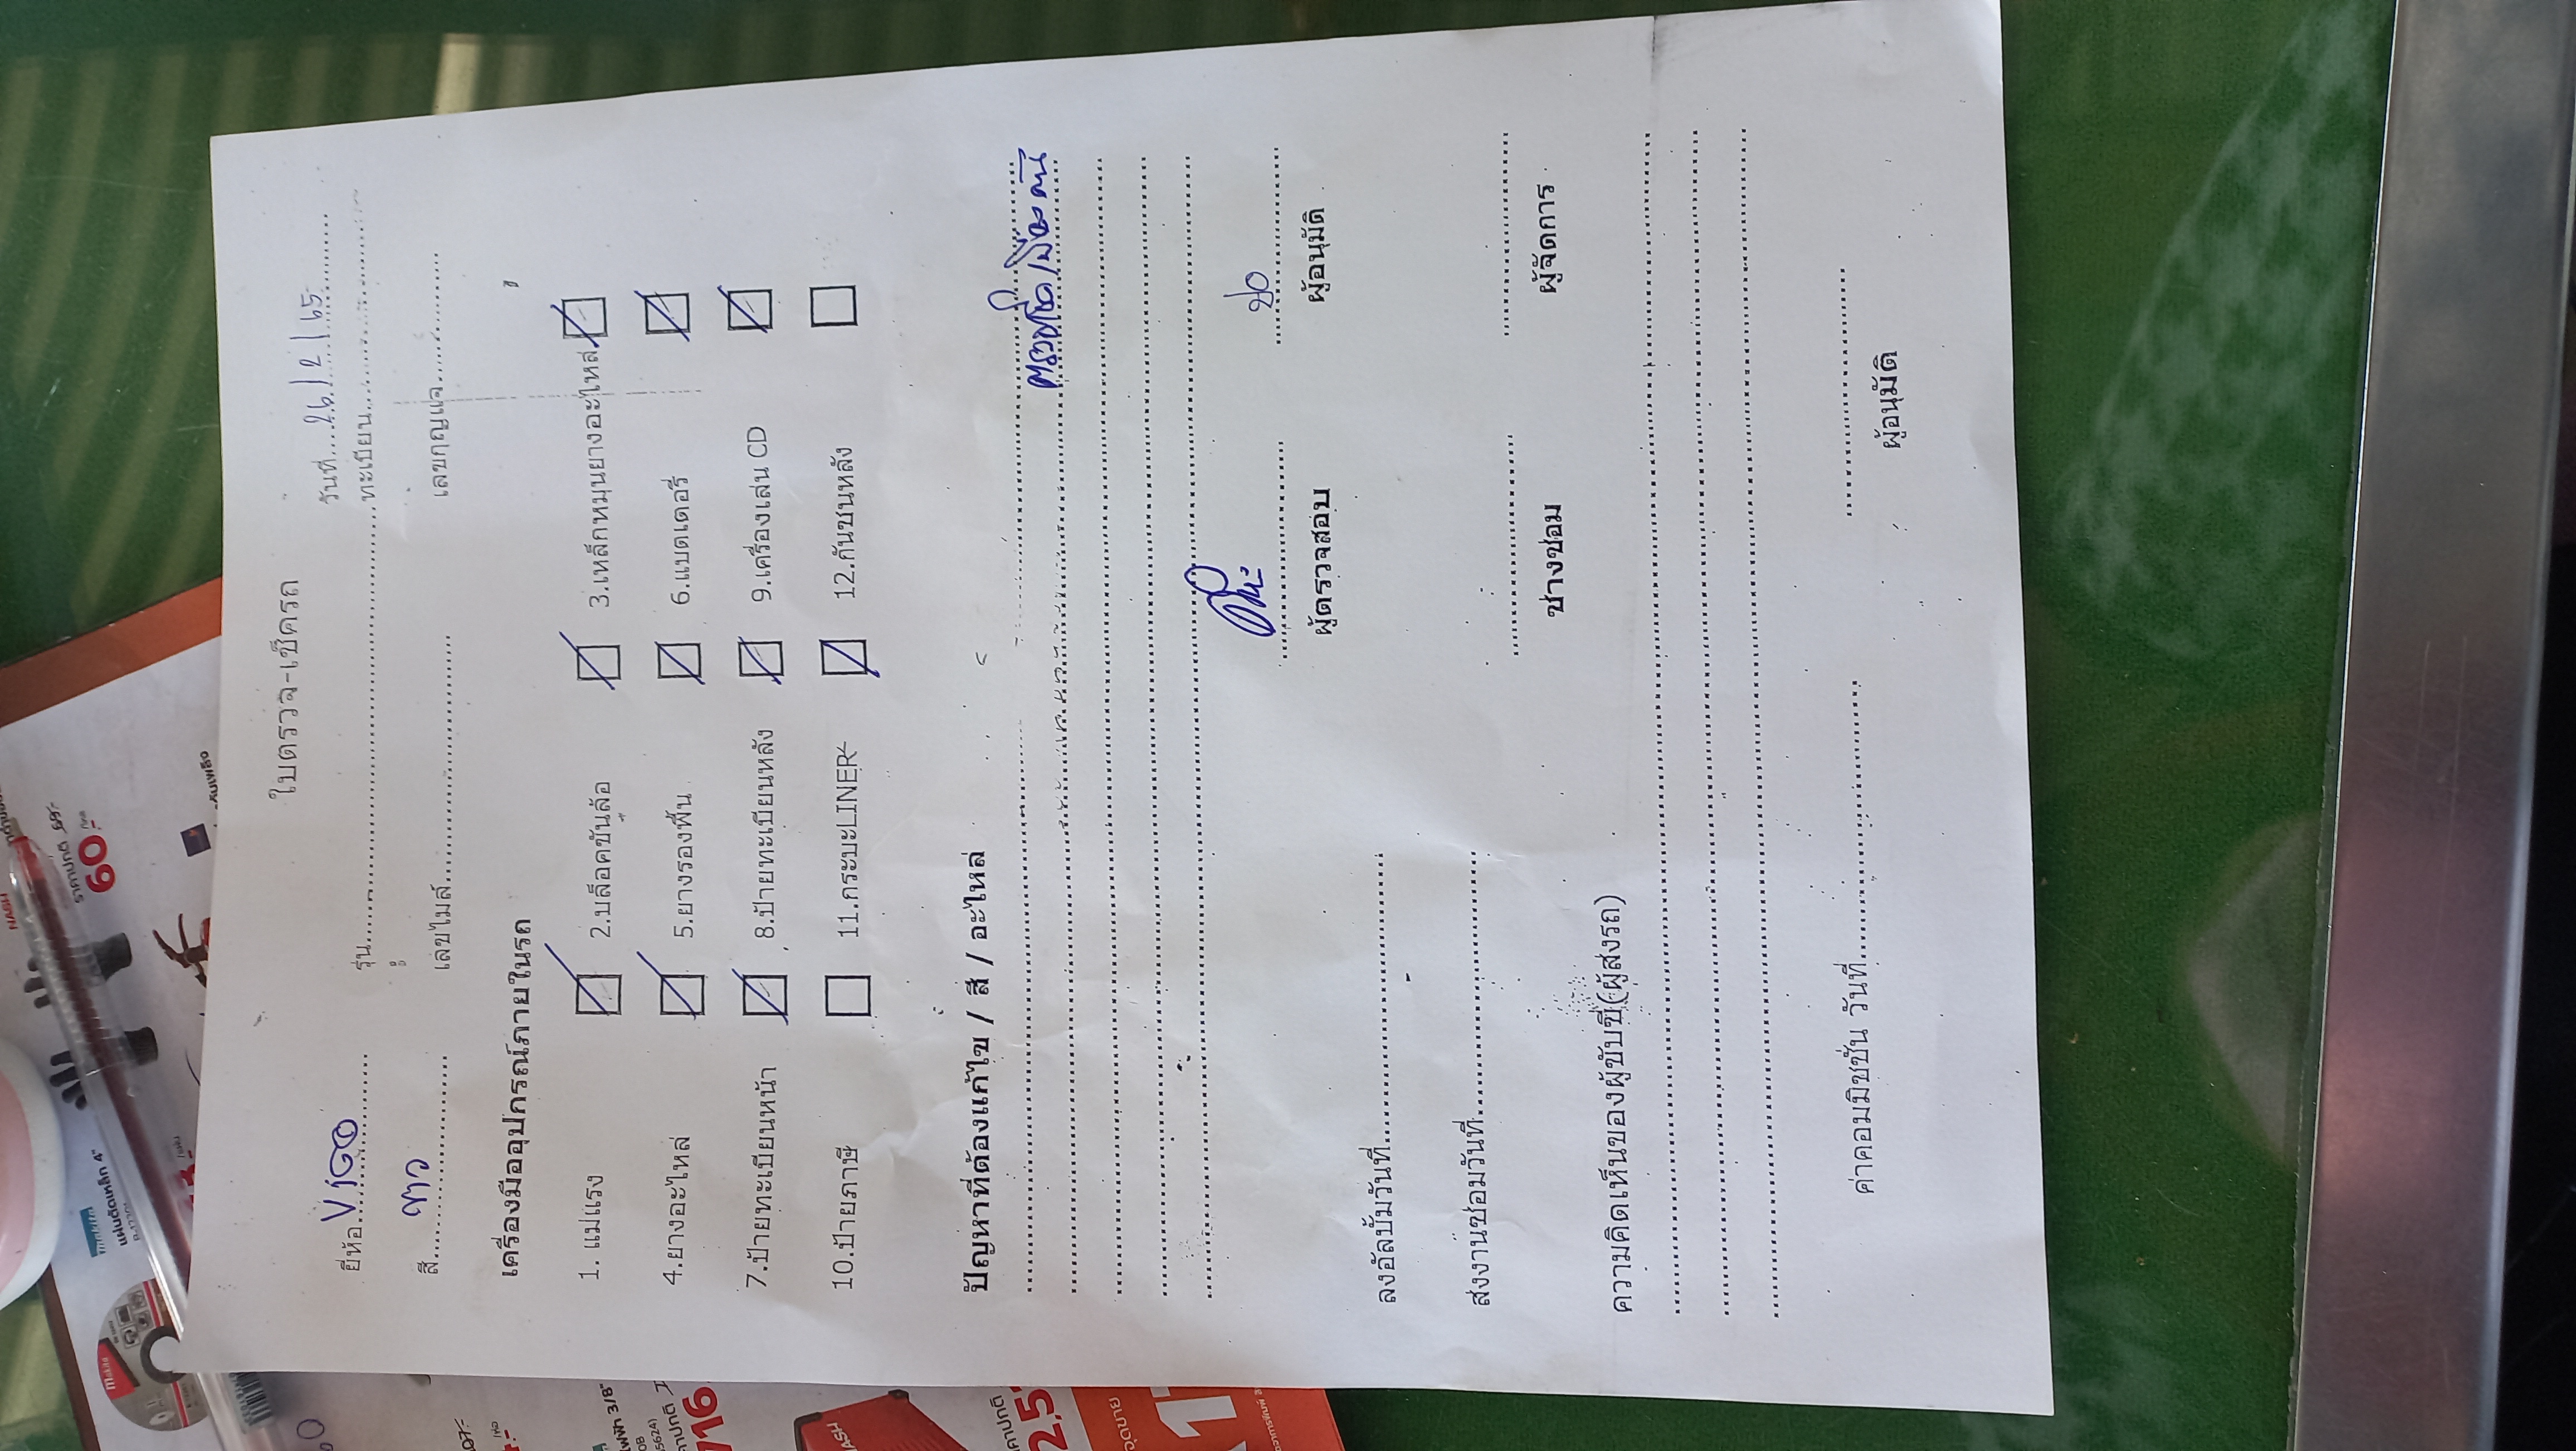 ใบตรวจ-เช็ครถ
วันที่....26/2/65
ยี่ห้อ VIGO รุ่น ทะเบียน
สี เทา เลขไมล์ เลขกุญแจ
เครื่องมืออุปกรณ์ภายในรถ
1. แม่แรง 2.บล็อคขันล้อ 3.เหล็กหมุนยางอะไหล่
4.ยางอะไหล่ 5.ยางรองพื้น 6.แบตเตอรี่
7.ป้ายทะเบียนหน้า 8.ป้ายทะเบียนหลัง 9.เครื่องเล่น CD
10.ป้ายภาษี 11.กระบะLINER 12.กันชนหลัง
ปัญหาที่ต้องแก้ไข / สี / อะไหล่
ผู้ตรวจสอบ ผู้อนุมัติ
ลงอัลบั้มวันที่
ส่งงานซ่อมวันที่ ช่างซ่อม ผู้จัดการ
ความคิดเห็นของผู้ขับขี่(ผู้ส่งรถ)
ค่าคอมมิชชั่น วันที่ ผู้อนุมัติ
NASH
ราคาปกติ 69.-
60.-
makita
แผ่นตัดเหล็ก 4"
716
2,5